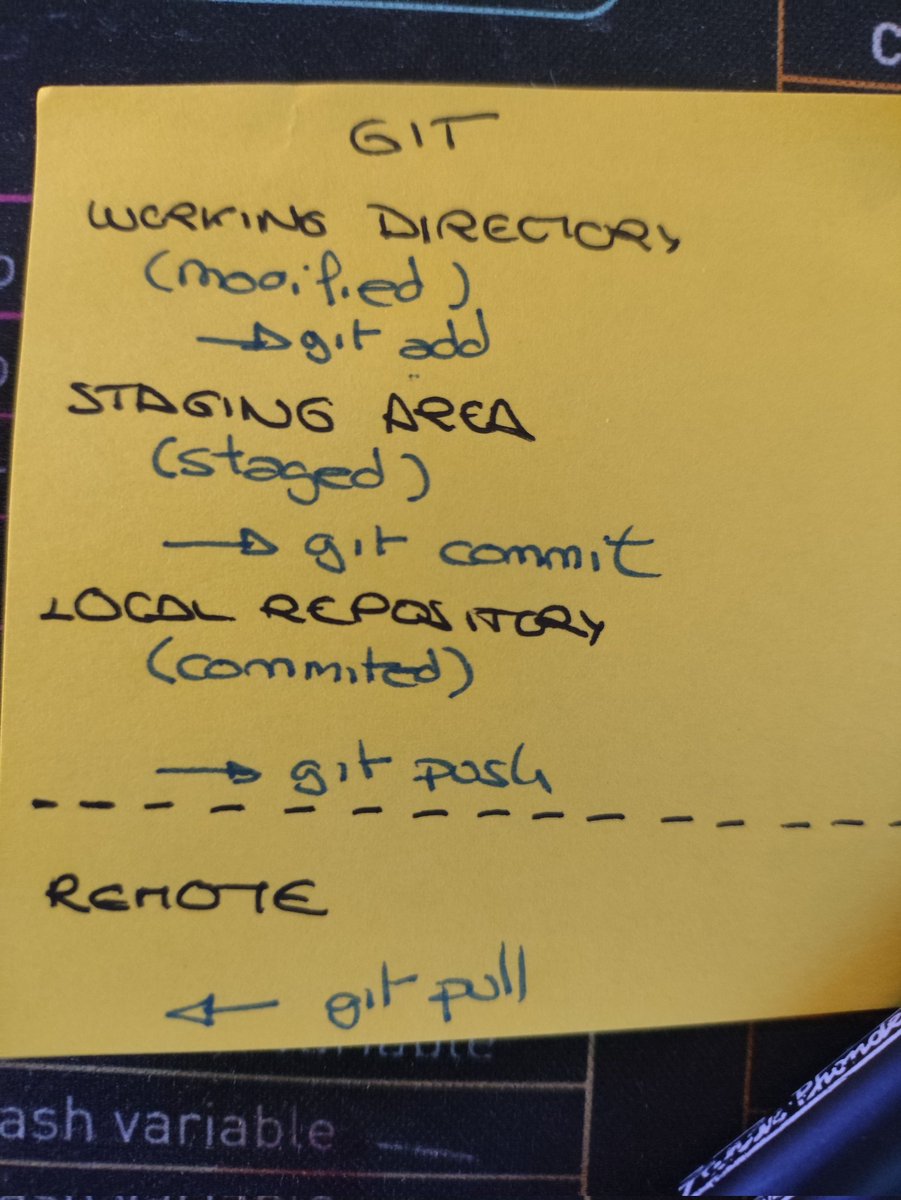 C
GIT
WORKING DIRECTORY
(modified)
→ git add
STAGING AREA
(staged)
→ git commit
LOCAL REPOSITORY
(commited)
→ git push
REMOTE
← git pull
variable
ash variable